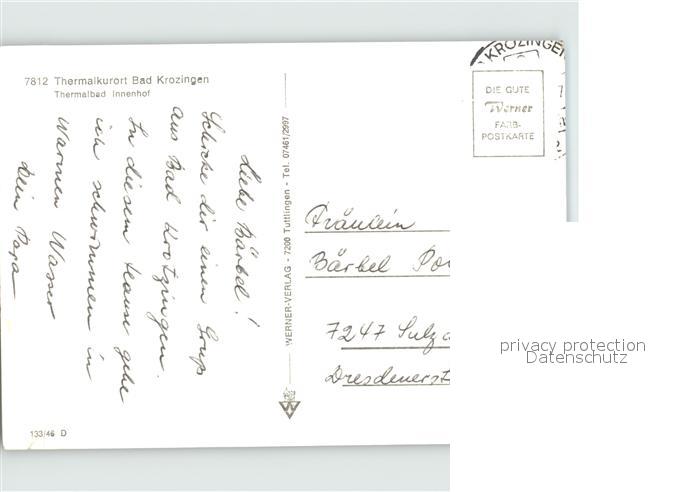 7812 Thermalkurort Bad Krozingen
Thermalbad Innenhof
Liebe Bärbel!
Schicke dir einen Grus
aus Bad Krotzingen.
In diesem Hause gehe
ich schwimmen in
Warmen Wasser
Dein Papa
133/46 D
WERNER-VERLAG - 7200 Tuttlingen - Tel. 07461/2997
KROZINGEN
DIE GUTE
Werner
FARB-
POSTKARTE
Fräulein
Bärbel
7247 Sulz a
Dresdenerst
privacy protection
Datenschutz